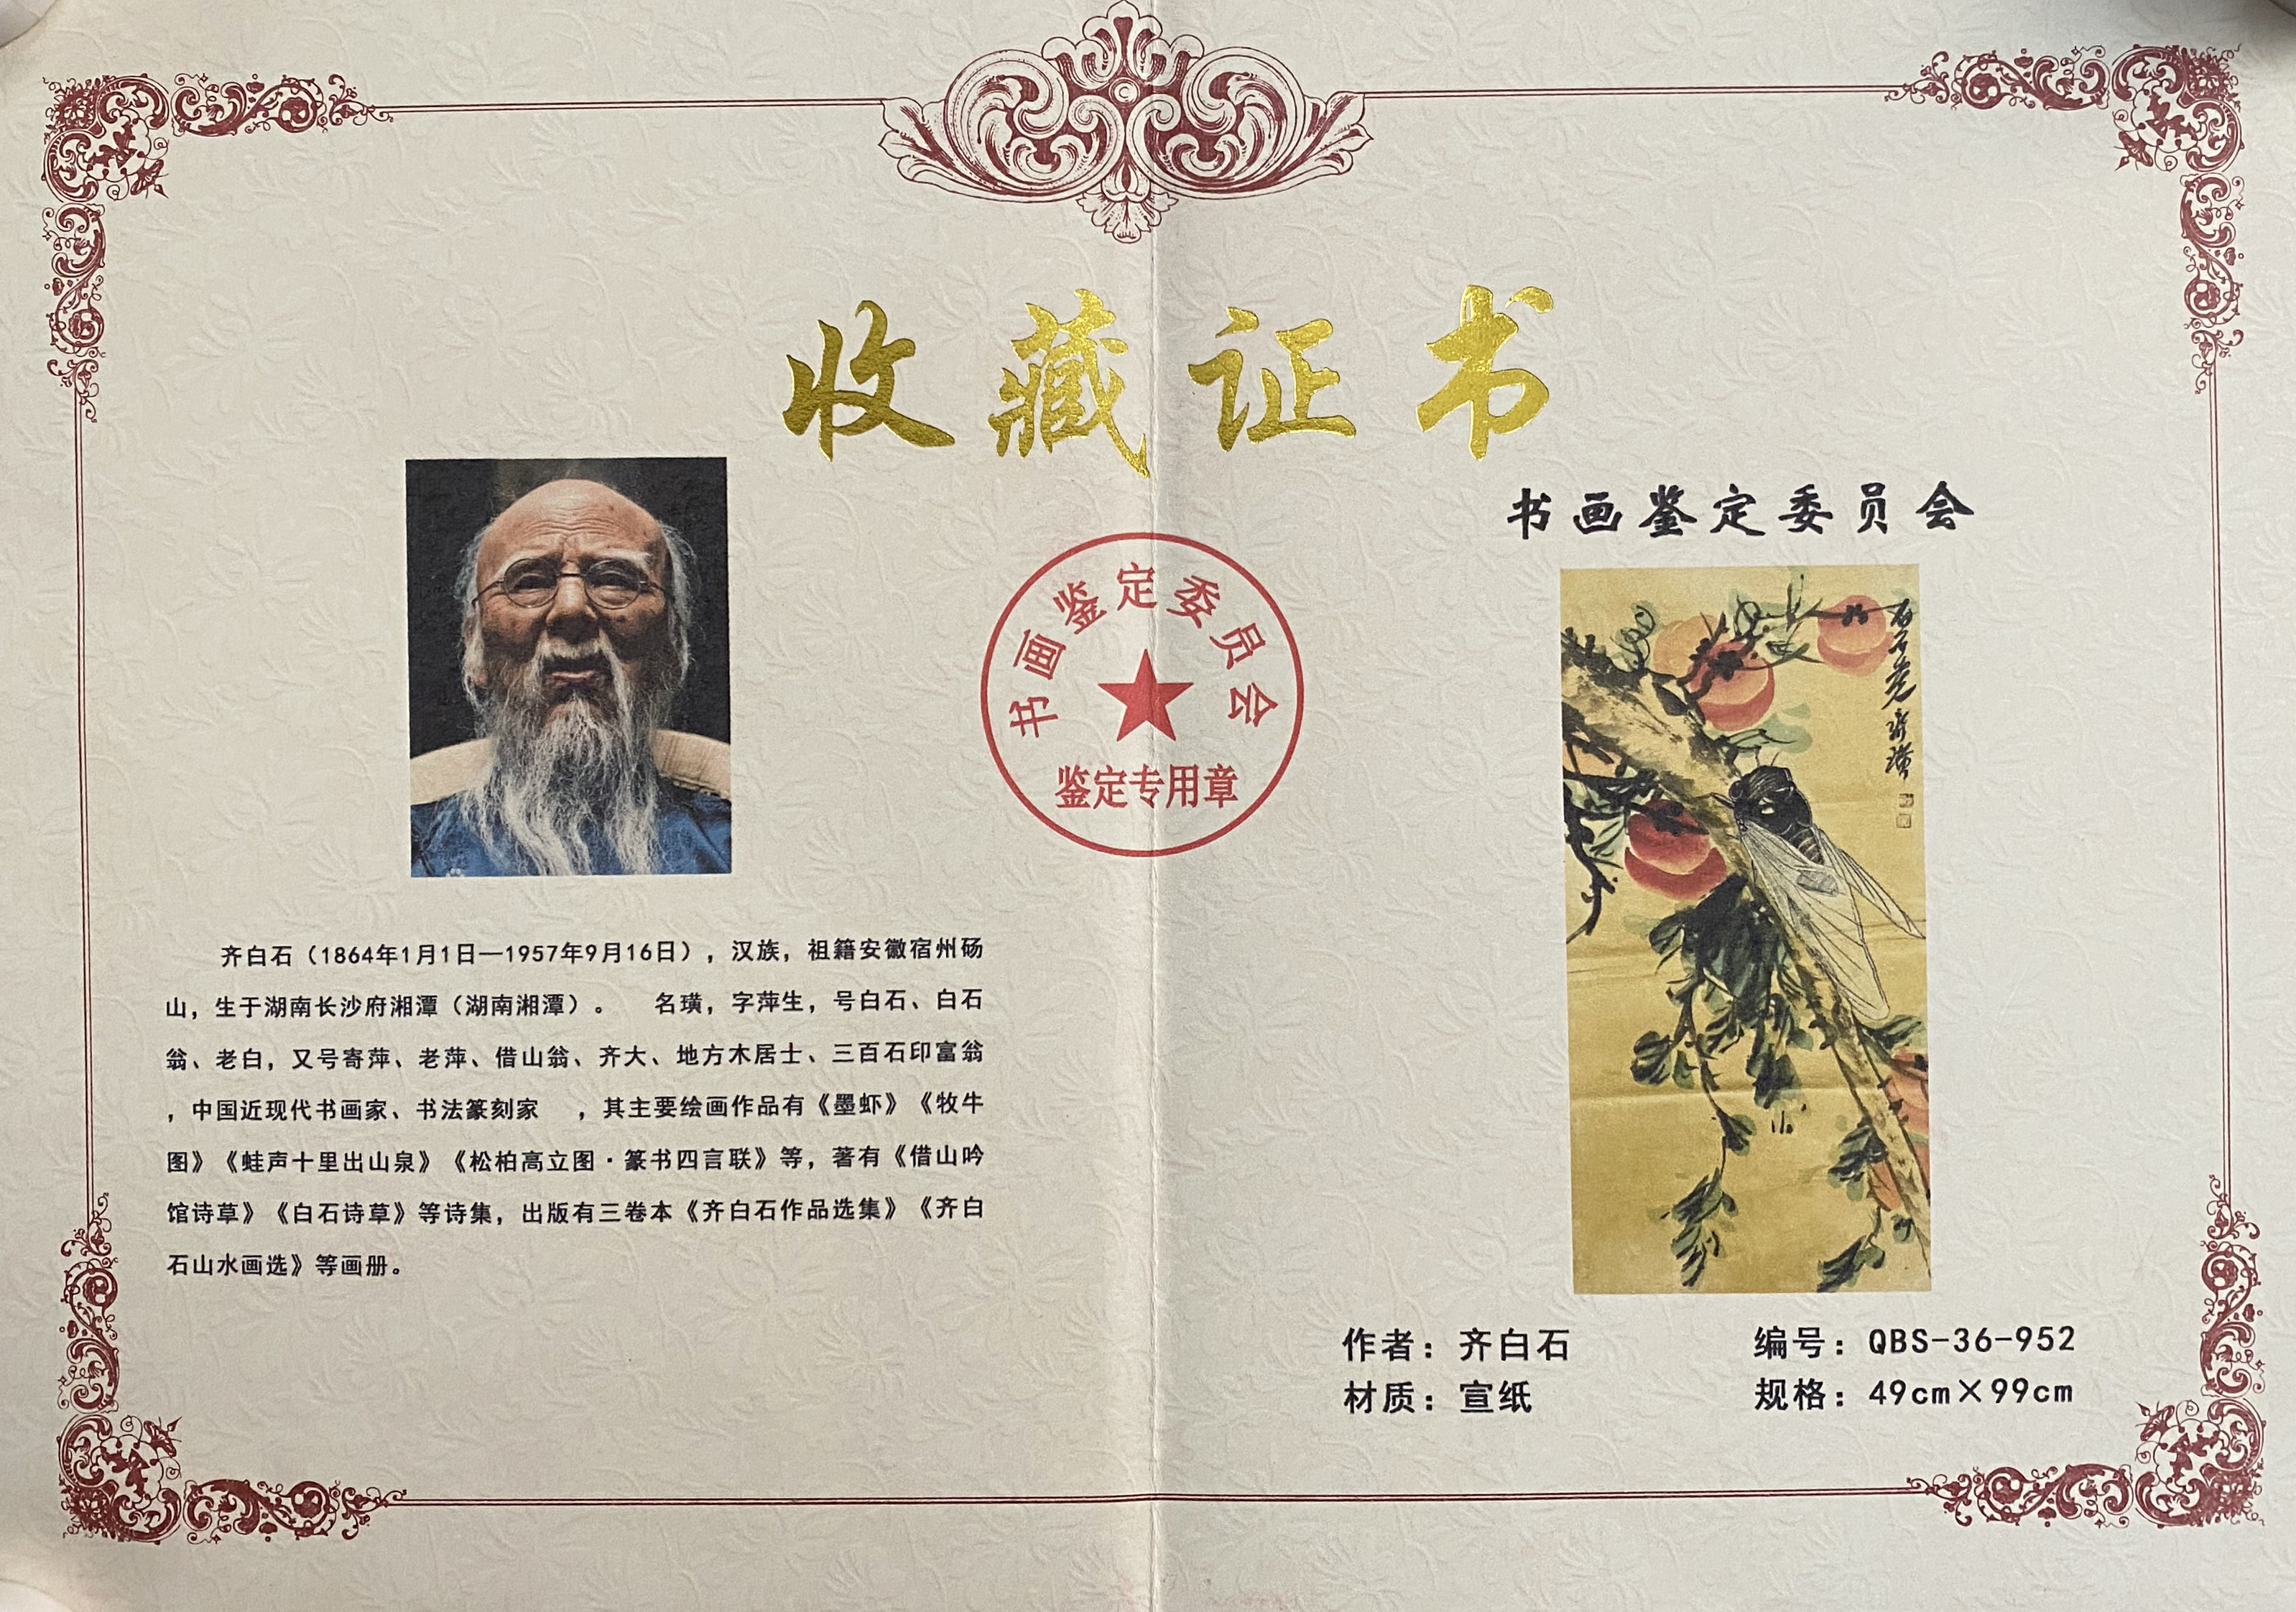 收藏证书
书画鉴定委员会
书画鉴定委员会
鉴定专用章
齐白石（1864年1月1日—1957年9月16日），汉族，祖籍安徽宿州砀
山，生于湖南长沙府湘潭（湖南湘潭）。 名璜，字萍生，号白石、白石
翁、老白，又号寄萍、老萍、借山翁、齐大、地方木居士、三百石印富翁
，中国近现代书画家、书法篆刻家 ，其主要绘画作品有《墨虾》《牧牛
图》《蛙声十里出山泉》《松柏高立图·篆书四言联》等，著有《借山吟
馆诗草》《白石诗草》等诗集，出版有三卷本《齐白石作品选集》《齐白
石山水画选》等画册。
齐璜
作者：齐白石
编号：QBS-36-952
材质：宣纸
规格：49cm×99cm